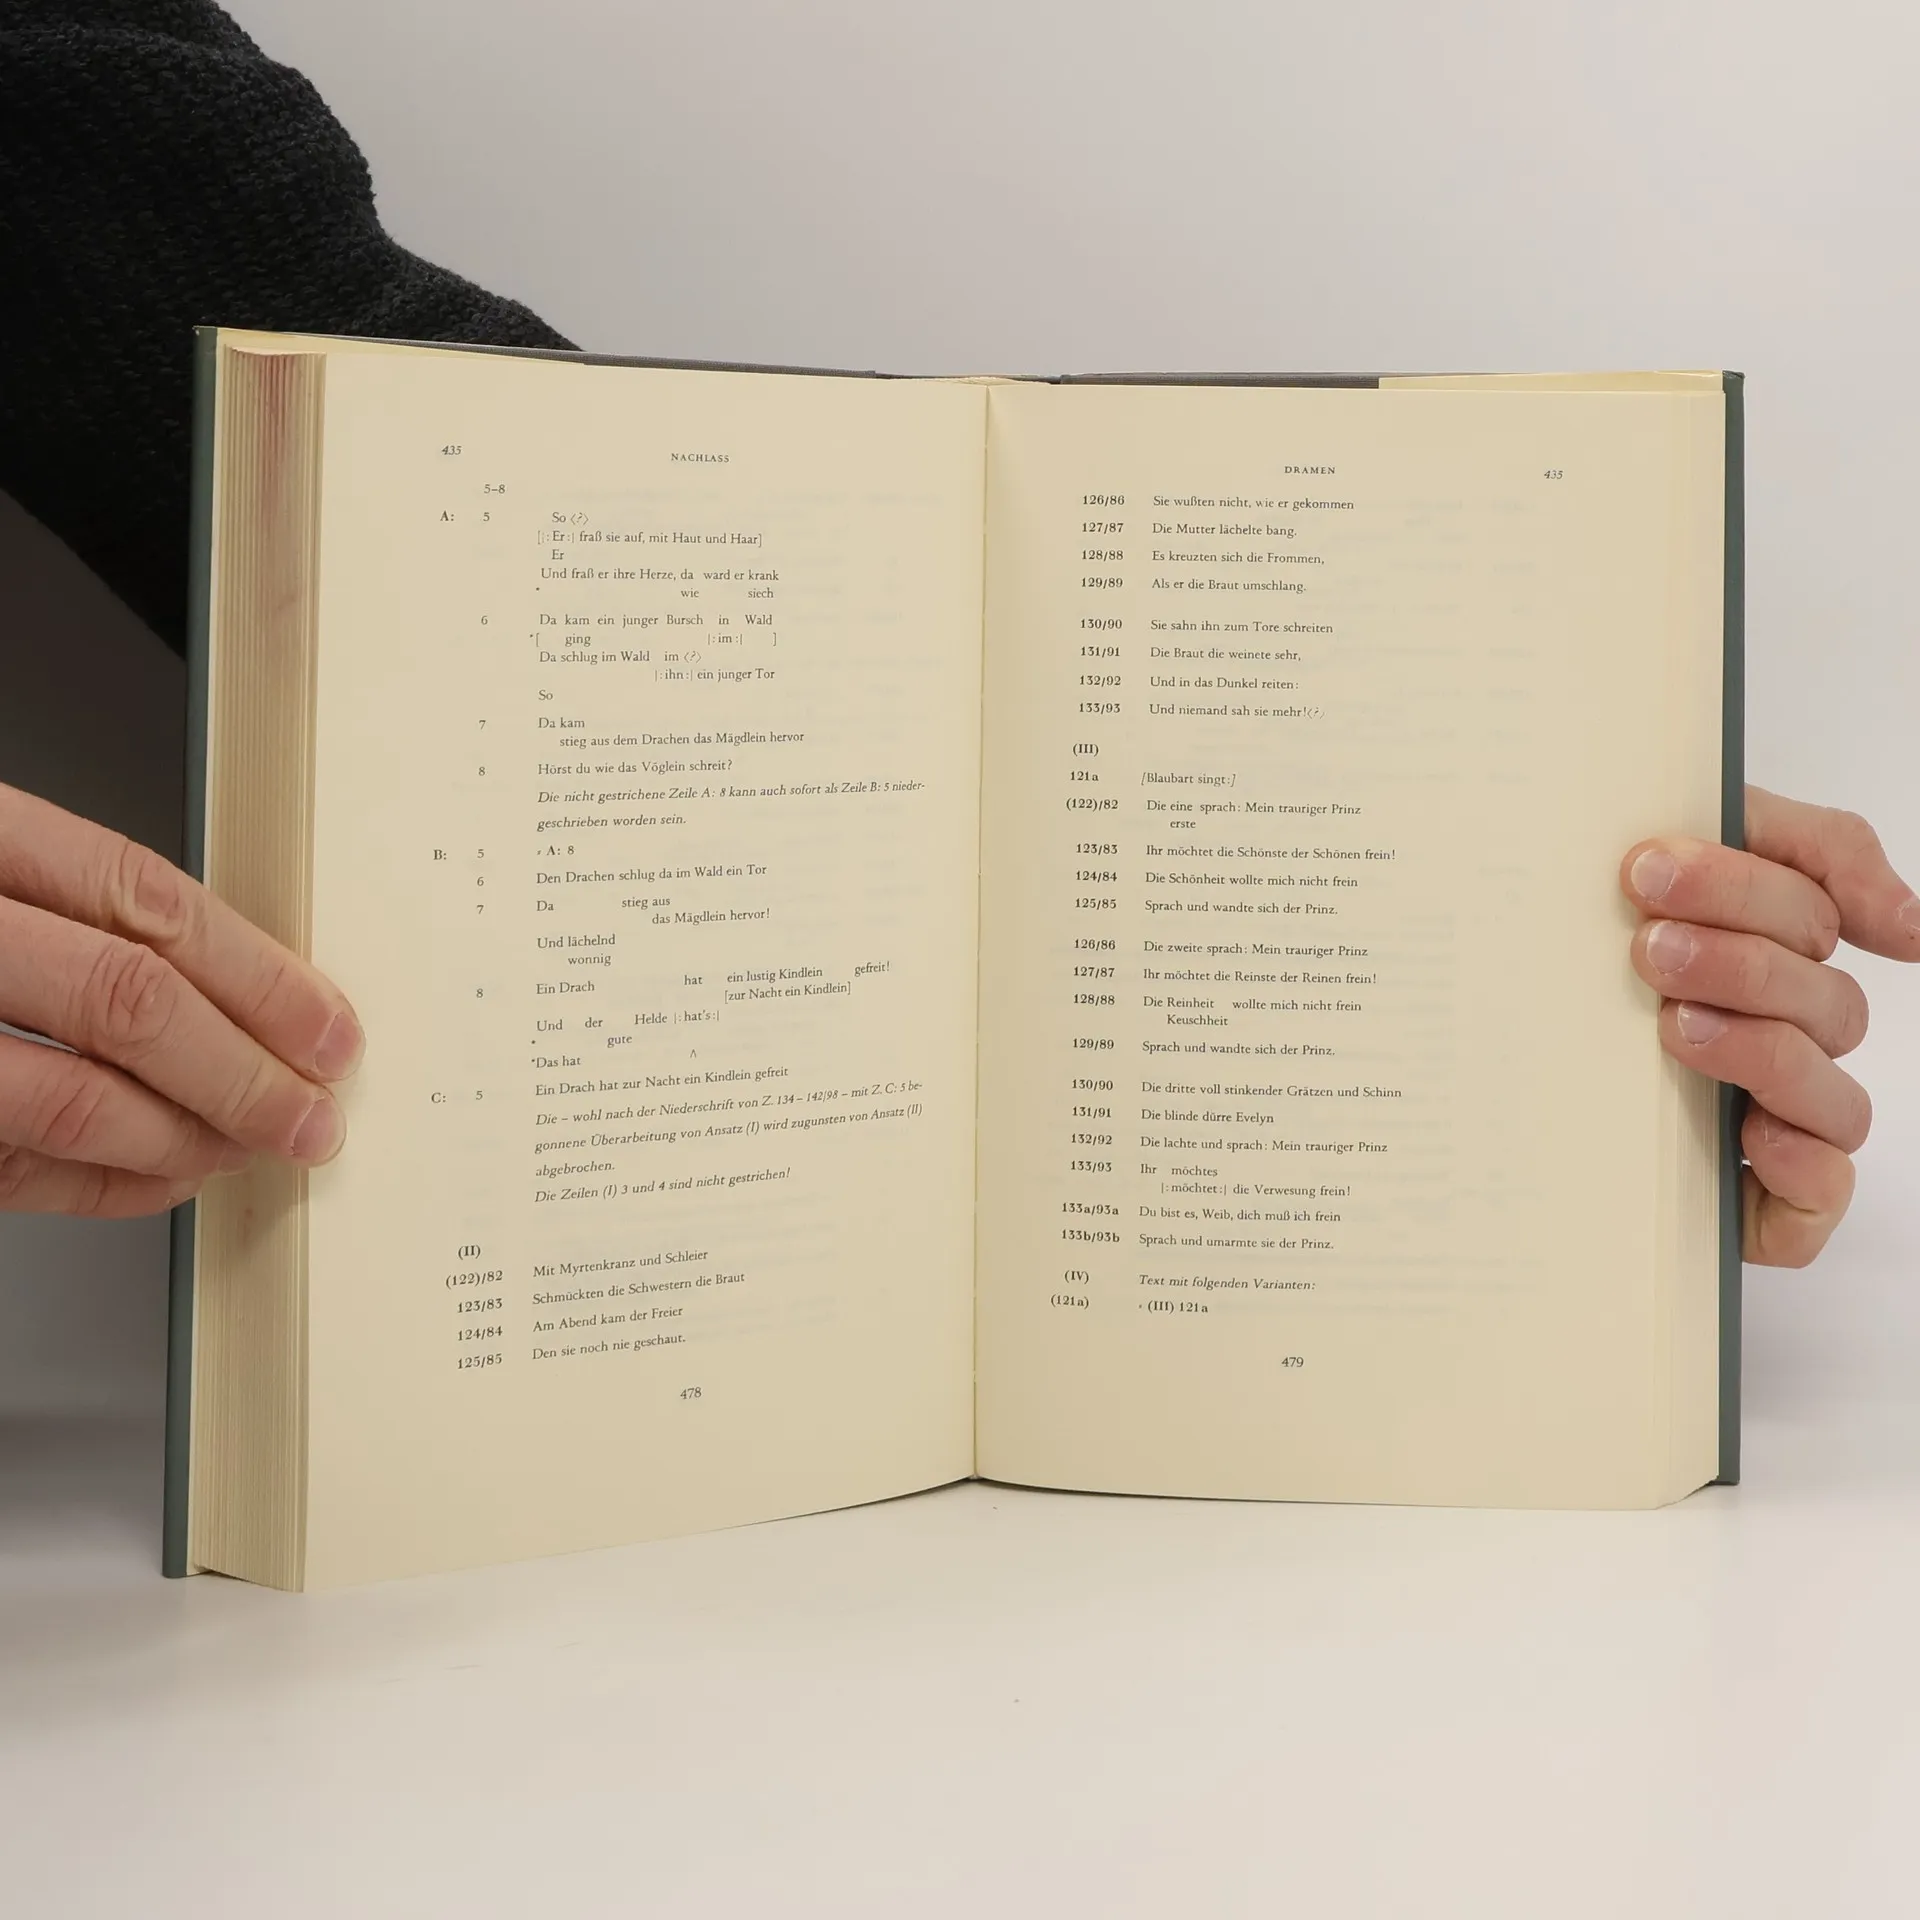 435 NACHLASS
5–8
A: 5 So ⟨?⟩
[|:Er:| fraß sie auf, mit Haut und Haar]
Er
Und fraß er ihre Herze, da ward er krank
* wie siech
6 Da kam ein junger Bursch in Wald
*[ ging |:im:| ]
Da schlug im Wald im ⟨?⟩
|:ihn:| ein junger Tor
So
7 Da kam
stieg aus dem Drachen das Mägdlein hervor
8 Hörst du wie das Vöglein schreit?
Die nicht gestrichene Zeile A: 8 kann auch sofort als Zeile B: 5 nieder-
geschrieben worden sein.
B: 5 A: 8
6 Den Drachen schlug da im Wald ein Tor
7 Da stieg aus
das Mägdlein hervor!
Und lächelnd
wonnig
8 Ein Drach hat ein lustig Kindlein gefreit!
[zur Nacht ein Kindlein]
Und der Helde |:hat's:|
* gute
*Das hat ʌ
C: 5 Ein Drach hat zur Nacht ein Kindlein gefreit
Die – wohl nach der Niederschrift von Z. 134–142/98 – mit Z. C: 5 be-
gonnene Überarbeitung von Ansatz (I) wird zugunsten von Ansatz (II)
abgebrochen.
Die Zeilen (I) 3 und 4 sind nicht gestrichen!
(II)
(122)/82 Mit Myrtenkranz und Schleier
123/83 Schmückten die Schwestern die Braut
124/84 Am Abend kam der Freier
125/85 Den sie noch nie geschaut.
478
DRAMEN 435
126/86 Sie wußten nicht, wie er gekommen
127/87 Die Mutter lächelte bang.
128/88 Es kreuzten sich die Frommen,
129/89 Als er die Braut umschlang.
130/90 Sie sahn ihn zum Tore schreiten
131/91 Die Braut die weinete sehr,
132/92 Und in das Dunkel reiten:
133/93 Und niemand sah sie mehr!⟨?⟩
(III)
121a [Blaubart singt:]
(122)/82 Die eine sprach: Mein trauriger Prinz
erste
123/83 Ihr möchtet die Schönste der Schönen frein!
124/84 Die Schönheit wollte mich nicht frein
125/85 Sprach und wandte sich der Prinz.
126/86 Die zweite sprach: Mein trauriger Prinz
127/87 Ihr möchtet die Reinste der Reinen frein!
128/88 Die Reinheit wollte mich nicht frein
Keuschheit
129/89 Sprach und wandte sich der Prinz.
130/90 Die dritte voll stinkender Grätzen und Schinn
131/91 Die blinde dürre Evelyn
132/92 Die lachte und sprach: Mein trauriger Prinz
133/93 Ihr möchtes
|:möchtet:| die Verwesung frein!
133a/93a Du bist es, Weib, dich muß ich frein
133b/93b Sprach und umarmte sie der Prinz.
(IV) Text mit folgenden Varianten:
(121a) (III) 121a
479